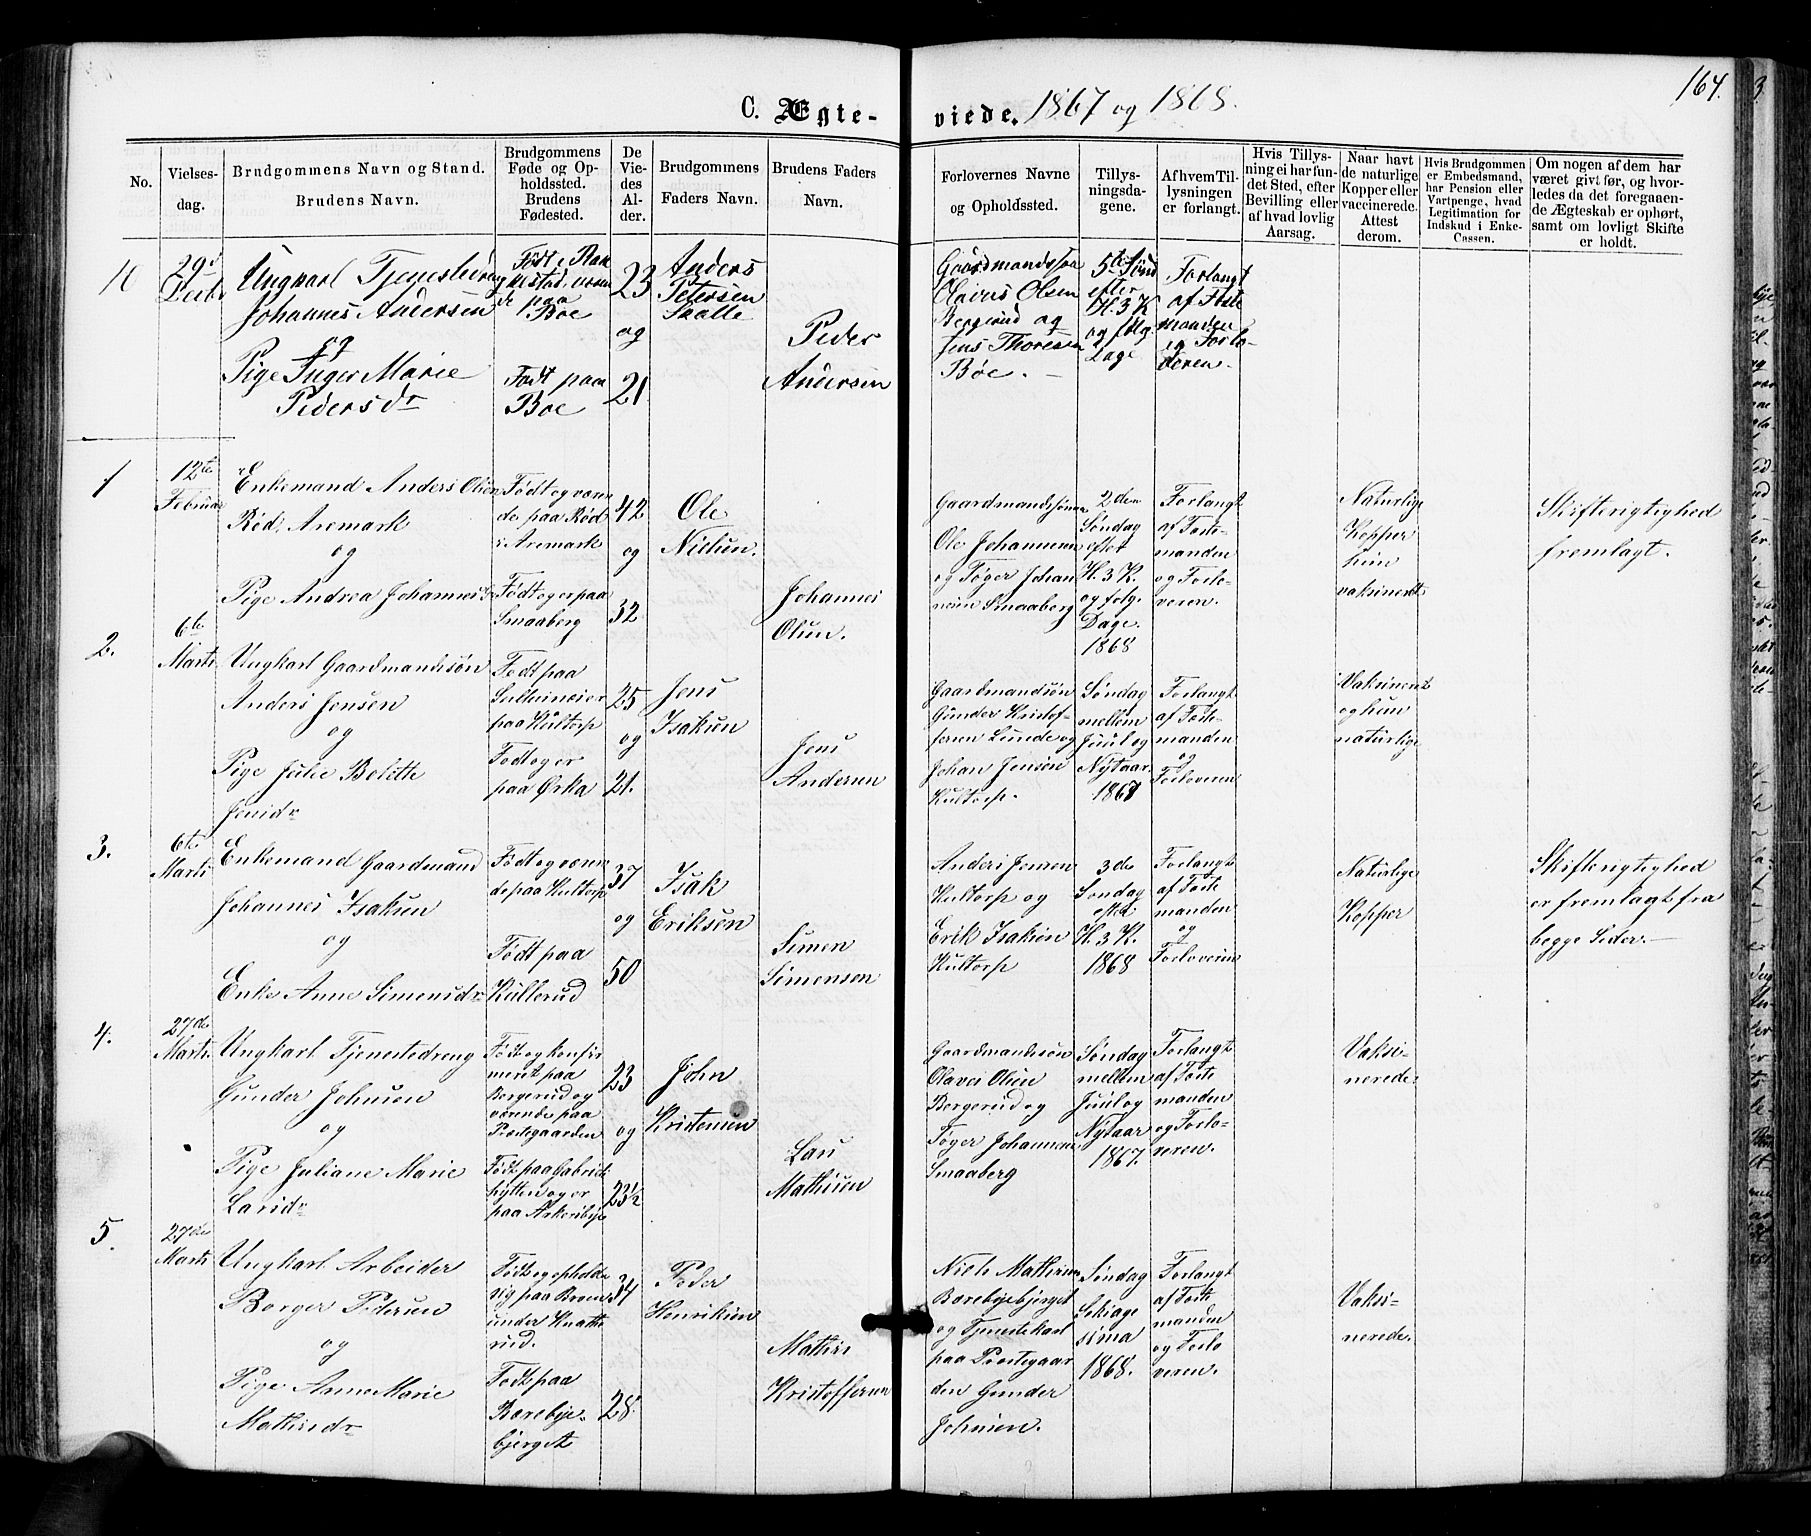 164.
C. Ægte- viede. 1867 og 1868.
No.
Vielses-
dag.
Brudgommens Navn og Stand.
Brudens Navn.
Brudgommens
Føde og Op-
holdssted.
Brudens
Fødested.
De
Vie-
des
Al-
der.
Brudgommens
Faders Navn.
Brudens Faders
Navn.
Forlovernes Navne
og Opholdssted.
Tillys-
ningsda-
gene.
Af hvem Til-
lysningen
er forlangt.
Hvis Tillys-
ning ei har fun-
det Sted, efter
Bevilling eller
af hvad lovlig
Aarsag.
Naar havt
de naturlige
Kopper eller
vaccinerede.
Attest
derom.
Hvis Brudgommen
er Embedsmand,
har Pension eller
Vartpenge, hvad
Legitimation for
Indskud i Enke-
Cassen.
Om nogen af dem har
været givt før, og hvor-
ledes da det foregaaen-
de Ægteskab er ophørt,
samt om lovligt Skifte
er holdt.
10
29d
Decbr
Ungkarl Tjenestedreng
Johannes Andersen
og
Pige Inger Marie
Pedersdr
Født i
paa
Boe
Født paa
Boe
23
og
21.
Anders
Petersen
Peder
Andersen
Gaardmandssøn
Olavus Olsen
Bergerud og
Jens Thoresen
Bøe. —
5te Sønd
efter
H. 3 K
og følg.
Dage
Forlangt
af Forste
manden
og Forlo-
veren.
1
12te
Februar
Enkemand Anders Olsen
Rød, Aremark
og
Pige Andrea Johannesdr
Født og væren
de paa Rød
i Aremark
Født og er paa
Smaaberg
42
og
32.
Ole
Nielsen.
Johannes
Olsen.
Gaardmandssønnen
Ole Johannesen
og Tøger Johan
nesen Smaaberg
2den
Søndag
efter
H. 3 K.
og følg.
Dage.
1868
Forlangt
af Forlo-
manden
og Forlo-
veren.
Naturlige
Kopper
hun
vaksineret
Skifterigtighed
fremlagt.
2.
6te
Marts
Ungkarl Gaardmandssøn
Anders Jensen
og
Pige Julie Bolette
Jensdr
Født paa
paa Kultorp
Født og er
paa Ørka
25
og
21.
Jens
Isaksen
Jens
Andersen
Gaardmandsøn
Gunder Kristof-
fersen Lunde og
Johan Jensen
Kultorp.
Søndag
mellem
Juul og
Nytaar.
1867
Forlangt
af Forlo-
manden
og
Forloveren
Vaksineret
og hun
naturlige
3.
6te
Marts
Enkemand Gaardmand
Johannes Isaksen
og
Enke Anne Simensdr
Født og væren
de paa Kultorp
Født paa
Kullerud
37
og
50
Isak
Eriksen
Simen
Simensen
Anders Jensen
Kultorp og
Erik Isaksen
Kultorp
3de
Søndag
efter
H. 3 K.
1868
Forlangt
af Forlo
manden
og
Forloveren
Naturlige
Kopper
Skifterigtighed
er fremlagt fra
begge Sider. —
4.
27de
Marts
Ungkarl Tjenestedreng
Gunder Johnsen
og
Pige Juliane Marie
Larsdr
Født og konfir
meret paa
Bergerud og
værende paa
Præstegaarden
Født paa Gabriels
hytten og er
paa Askeribye
23
og
23½
John
Kristensen
Lars
Mathisen
Gaardmandssøn
Olaves Olsen
Bergerud og
Tøger Johannesen
Smaaberg
Søndag
mellem
Juul og
Nytaar
1867.
Forlangt
af Forlo
manden
og Forlo-
veren.
Vaksi-
nerede.
5.
27de
Marts
Ungkarl Arbeider
Borger Pedersen
og
Pige Anne Marie
Mathisdr
Født og opholder
sig paa Broen
under Knatte
rud.
Født paa
Borebye-
bjerget
34
28.
Peder
Henriksen
Mathis
Kristoffersen
Niels Mathisen
Borebyebjerget
og Tjenestekarl
paa Præstegaar
den Gunder
Johnsen.
Søndag
Seksage
sima
1868.
Forlangt
af Forlo
manden
og Forlo
veren.
Vaksi-
nerede.